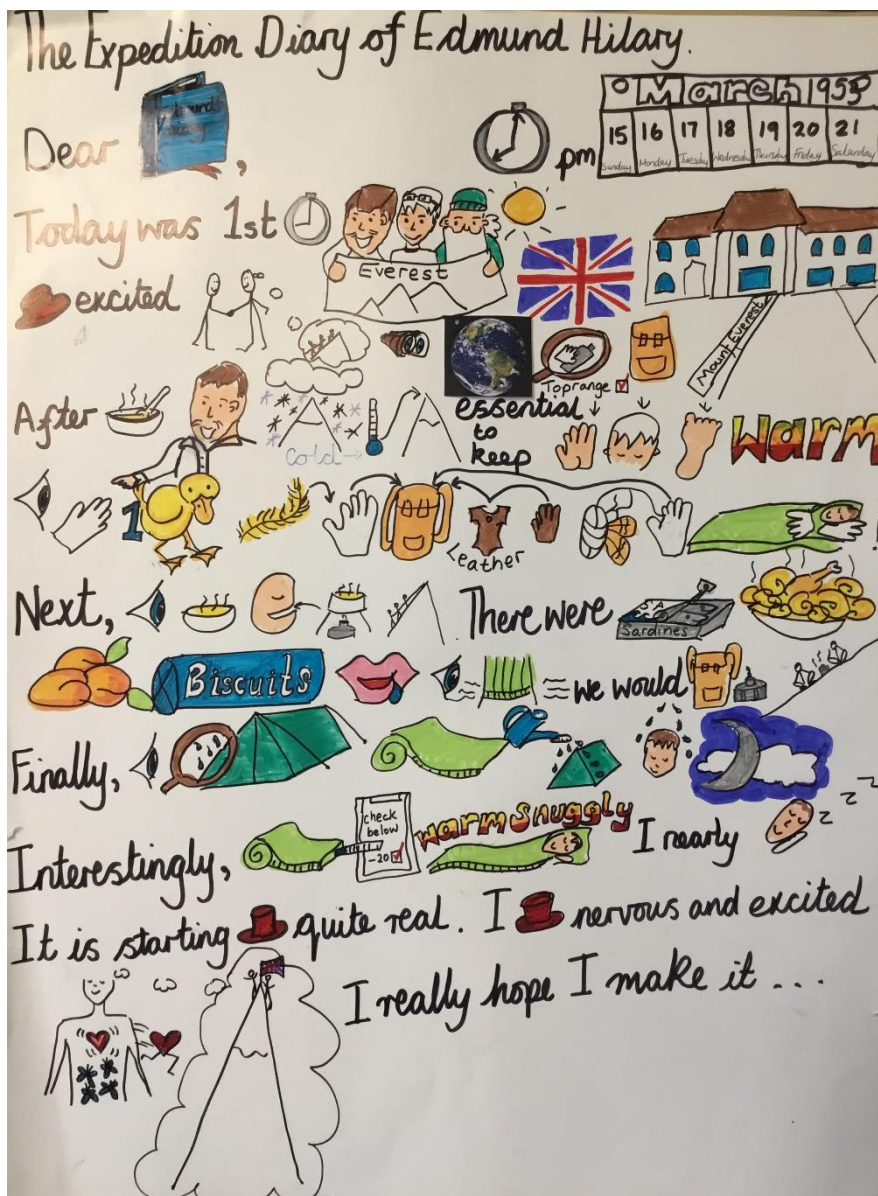 The Expedition Diary of Edmund Hilary.
March 1953
Dear ,
pm
15 16 17 18 19 20 21
Sunday Monday Tuesday Wednesday Thursday Friday Saturday
Today was 1st
Everest
excited
Mount Everest
Toprange
After
essential
to
keep
Warm
Cold
1
Leather
!
Next,
There were
Sardines
Biscuits
we would
Finally,
check
below
-20
warm Snuggly
I nearly
z z z
Interestingly,
It is starting quite real. I nervous and excited
I really hope I make it ...